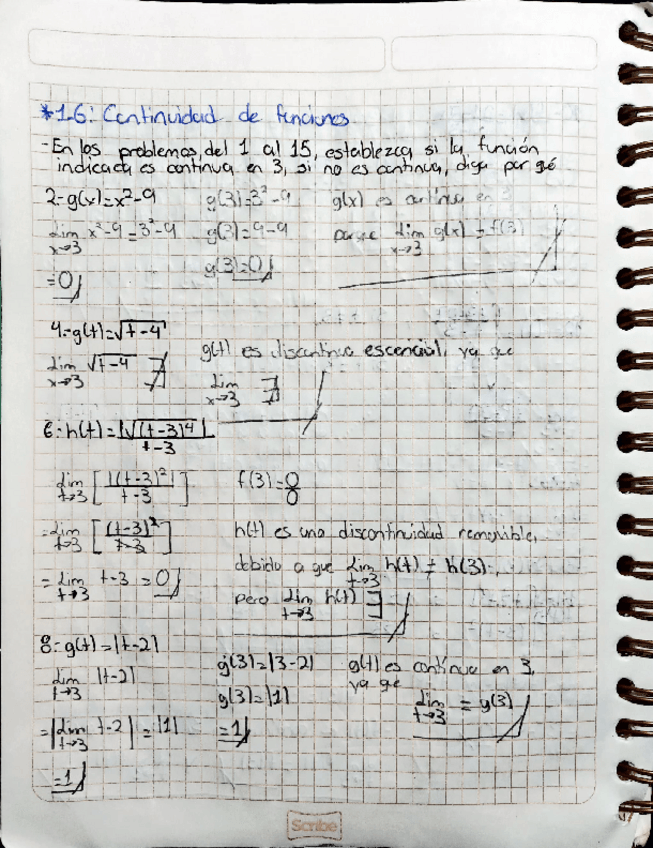 *1.6: Continuidad de funciones
-En los problemas del 1 al 15, establezca si la función
indicada es continua en 3, si no es continua, diga por qué
2.- g(x)=x²-9
Lim x→3 x²-9=3²-9
=0
g(3)=3²-9
g(3)=9-9
g(3)=0
g(x) es continua en 3
porque Lim x→3 g(x) = f(3)
4.- g(t)=√t-4
Lim x→3 √t-4 ∄
g(t) es discontinua escencial, ya que
Lim x→3 ∄
6.- h(t)=|√(t-3)⁴| / t-3
Lim t→3 [|(t-3)²| / t-3]
=Lim t→3 [(t-3)² / t-3]
= Lim t→3 t-3 = 0
f(3)=0/0
h(t) es una discontinuidad removible,
debido a que Lim t→3 h(t) ≠ h(3),
pero Lim t→3 h(t) ∃
8.- g(t)=|t-2|
Lim t→3 |t-2|
=|Lim t→3 t-2| = |1|
=1
g(3)=|3-2|
g(3)=|1|
=1
g(t) es continua en 3,
ya que
Lim t→3 = g(3)
Scribe